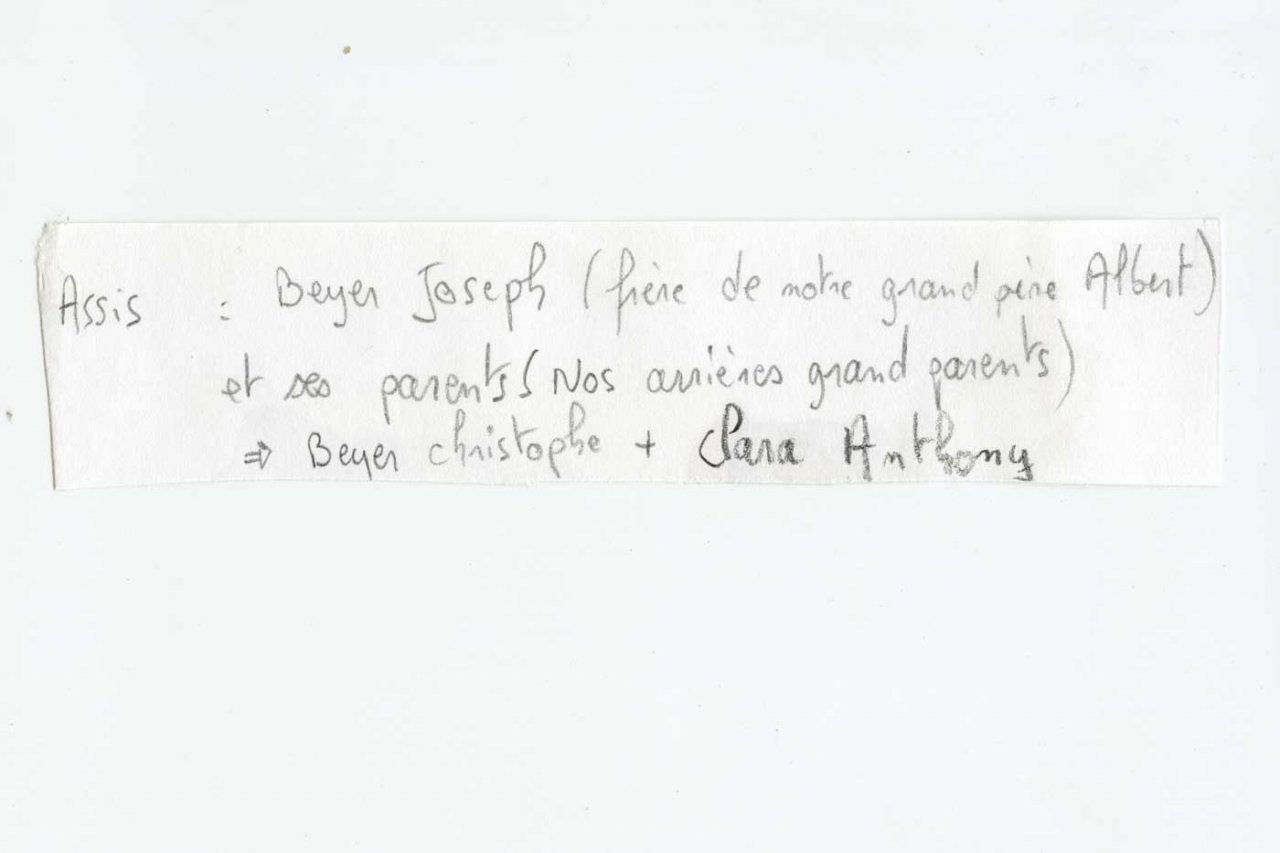 Assis : Beyer Joseph (frère de notre grand père Albert)
et ses parents (Nos arrières grand parents)
⇒ Beyer christophe + Clara Anthony